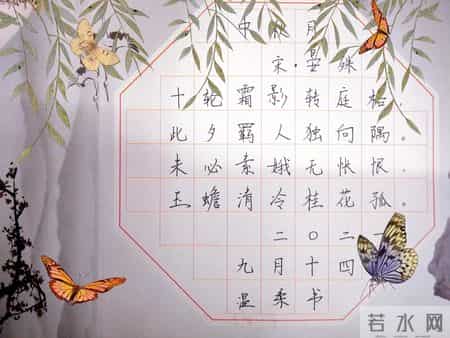 中秋月
宋·晏殊
十轮霜影转庭梧,
此夕羁人独向隅。
未必素娥无怅恨,
玉蟾清冷桂花孤。
二〇二一
九月十四
温书
若水网